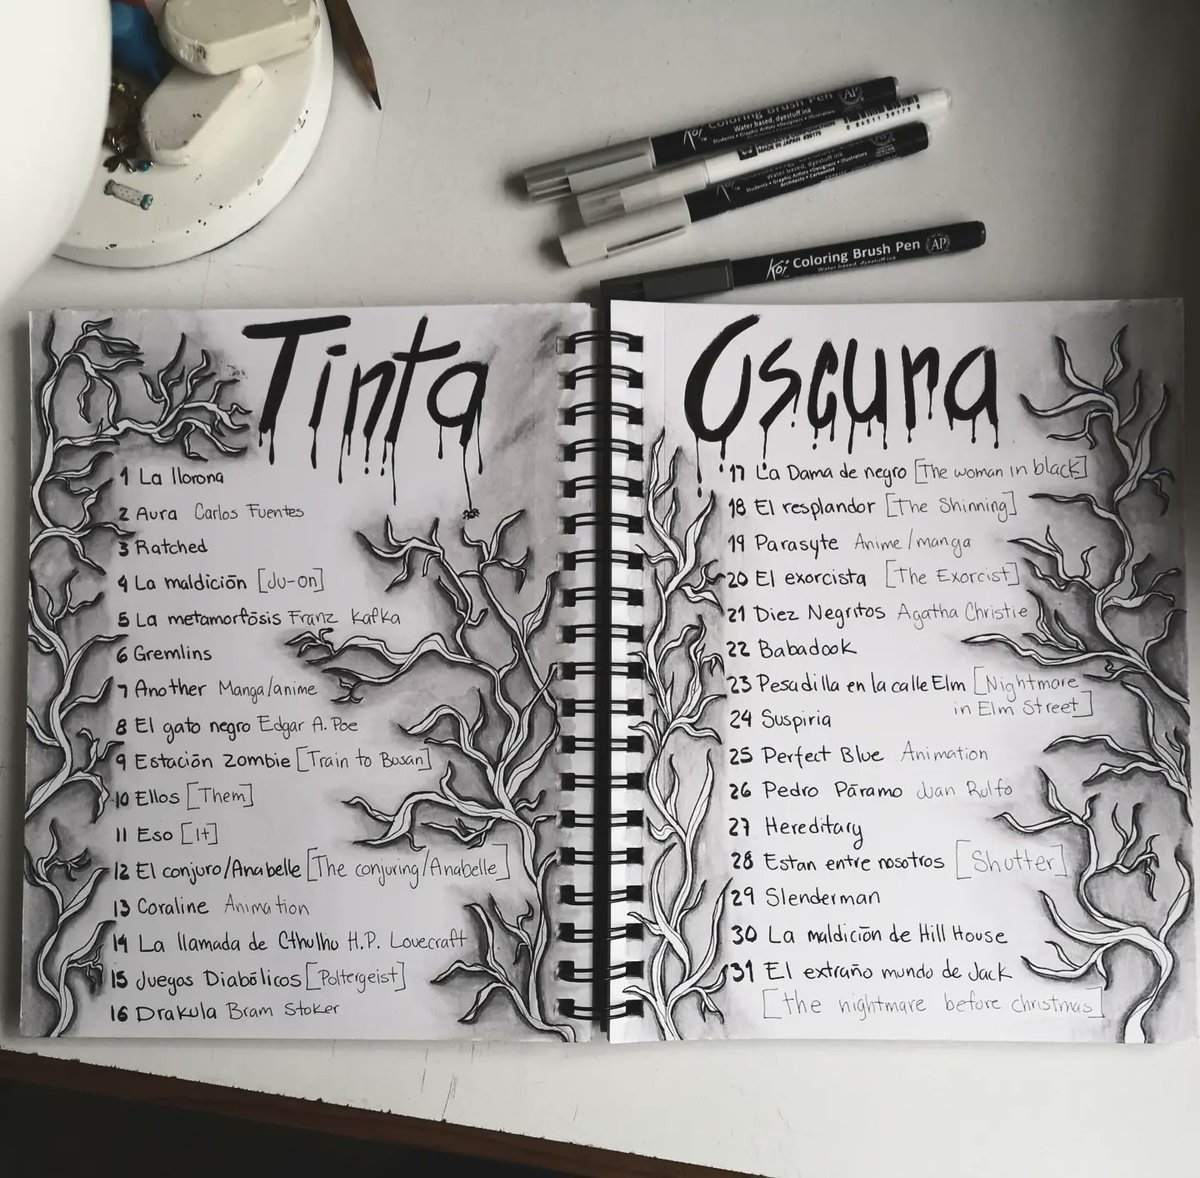 Koi Coloring Brush Pen AP
Water based, dyestuff ink
Students • Graphic Artists • Designers • Illustrators
Water based, dyestuff ink
Students • Graphic Artists • Designers • Illustrators
Architects • Cartoonist
Koi Coloring Brush Pen AP
Water based, dyestuff ink
Tinta
1 La llorona
2 Aura Carlos Fuentes
3 Ratched
4 La maldición [Ju-on]
5 La metamorfósis Franz Kafka
6 Gremlins
7 Another Manga/anime
8 El gato negro Edgar A. Poe
9 Estación Zombie [Train to Busan]
10 Ellos [Them]
11 Eso [It]
12 El conjuro/Anabelle [The conjuring/Anabelle]
13 Coraline Animation
14 La llamada de Cthulho H.P. Lovecraft
15 Juegos Diabólicos [Poltergeist]
16 Drakula Bram Stoker
Oscura
17 La Dama de negro [The woman in black]
18 El resplandor [The Shinning]
19 Parasyte Anime/manga
20 El exorcista [The Exorcist]
21 Diez Negritos Agatha Christie
22 Babadook
23 Pesadilla en la calle Elm [Nightmare
in Elm Street]
24 Suspiria
25 Perfect Blue Animation
26 Pedro Páramo Juan Rulfo
27 Hereditary
28 Estan entre nosotros [Shutter]
29 Slenderman
30 La maldición de Hill House
31 El extraño mundo de Jack
[the nightmare before christmas]